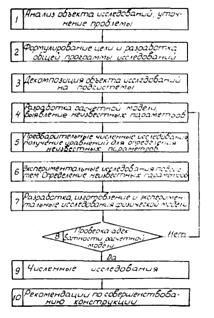 1
Анализ объекта исследований, уточ-
нение проблемы
2
Формулирование цели и разработка
общей программы исследований
3
Декомпозиция объекта исследований
на подсистемы
4
Разработка расчетной модели,
выявление неизвестных параметров
Предварительные численные исследования,
получение уравнений для определения
неизвестных параметров
6
Экспериментальные исследования подсис-
тем Определение неизвестных параметров
7
Разработка, изготовление и эксперимен-
тальные исследования физической модели
8
Проверка адек-
ватности расчетной
модели
Нет
Да
9
Численные исследования
10
Рекомендации по совершенствова-
нию конструкции